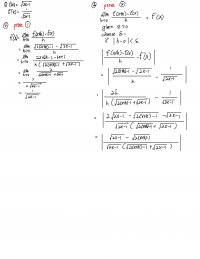 f(x) = √2x-1
f'(x) = 1/√2x-1
① prove f'
f'(x) = lim h→0 f(x+h) - f(x) / h
= lim h→0 √2(x+h)-1 - √2x-1 / h
= lim h→0 2(x+h)-1 - (2x-1) / h ( √2(x+h)-1 + √2x-1 )
= lim h→0 2 / √2(x+h)-1 + √2x-1
= 2 / 2√2x-1
= 1 / √2x-1
② prove
lim h→0 f(x+h)-f(x) / h = f'(x)
given ε > 0
choose δ =
if | h - 0 | < δ
| f(x+h)-f(x) / h - f'(x) |
= | √2(x+h)-1 - √2x-1 / h - 1 / √2x-1 |
= | 2h / h ( √2(x+h)-1 + √2x-1 ) - 1 / √2x-1 |
= | 2√2x-1 - √2(x+h)-1 - √2x-1 / √2x-1 ( √2(x+h)-1 + √2x-1 ) |
= | √2x-1 - √2(x+h)-1 / √2x-1 ( √2(x+h)-1 + √2x-1 ) |